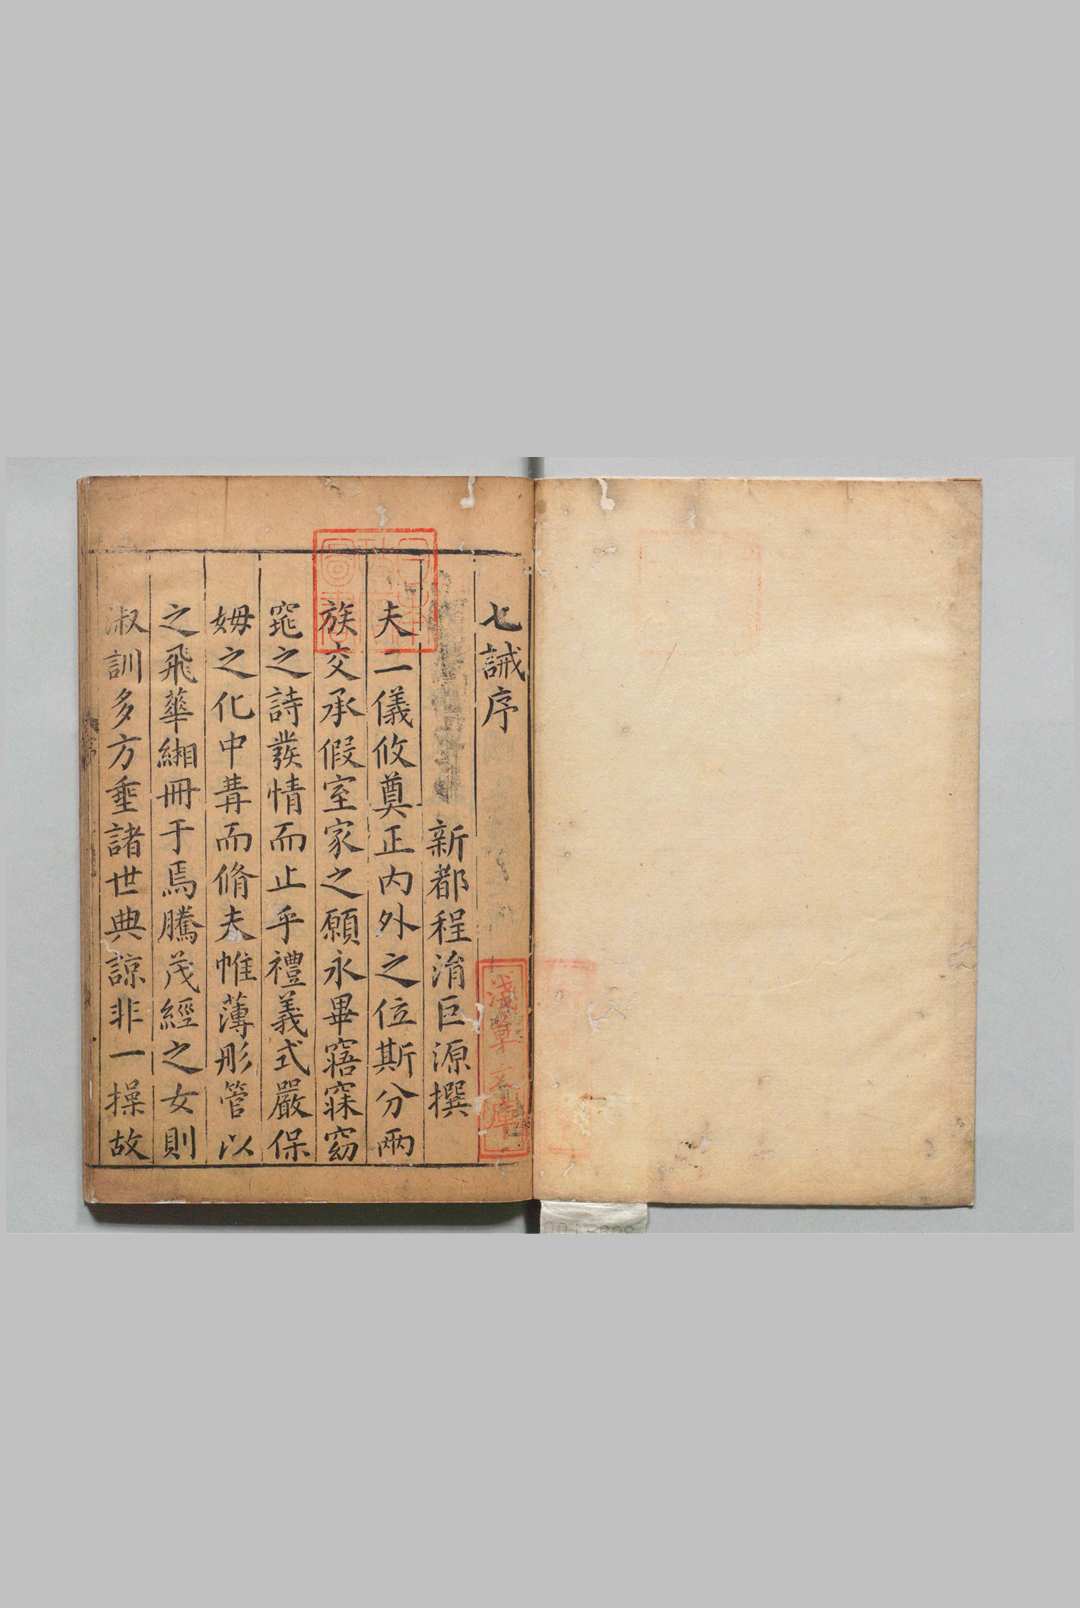 七誡序
新都程涓巨源撰
夫二儀攸奠正內外之位斯分兩
族交承假室家之願永畢寤寐窈
窕之詩發情而止乎禮義式嚴保
姆之化中冓而脩夫帷薄彤管以
之飛華緗冊于焉騰茂經之女則
淑訓多方垂諸世典諒非一操故
淺草文庫